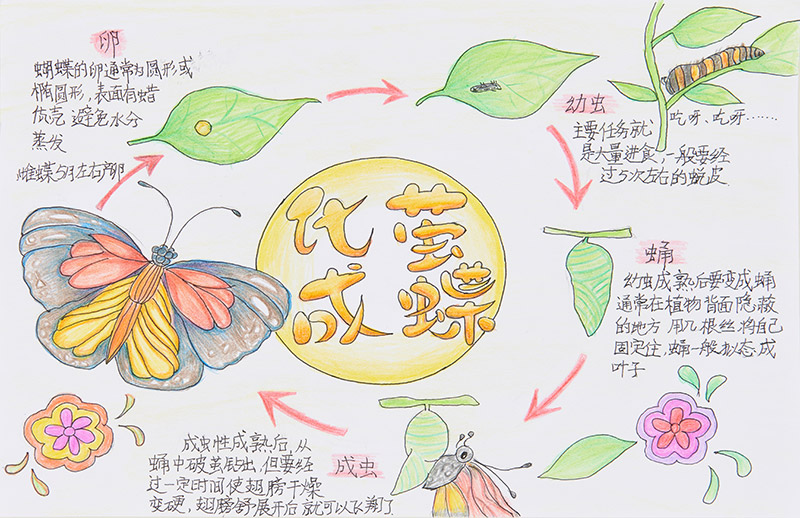 卵
蝴蝶的卵通常为圆形或
椭圆形，表面有蜡
质壳 避免水分
蒸发
雌蝶5月左右产卵
幼虫
主要任务就
是大量进食，一般要经
过5次左右的蜕皮.
吃呀、吃呀……
化茧
成蝶
蛹
幼虫成熟后要变成蛹
通常在植物背面隐蔽
的地方 用几根丝将自己
固定住，蛹一般拟态成
叶子
成虫
成虫性成熟后，从
蛹中破茧钻出，但要经
过一定时间使翅膀干燥
变硬，翅膀舒展开后就可以飞翔了.